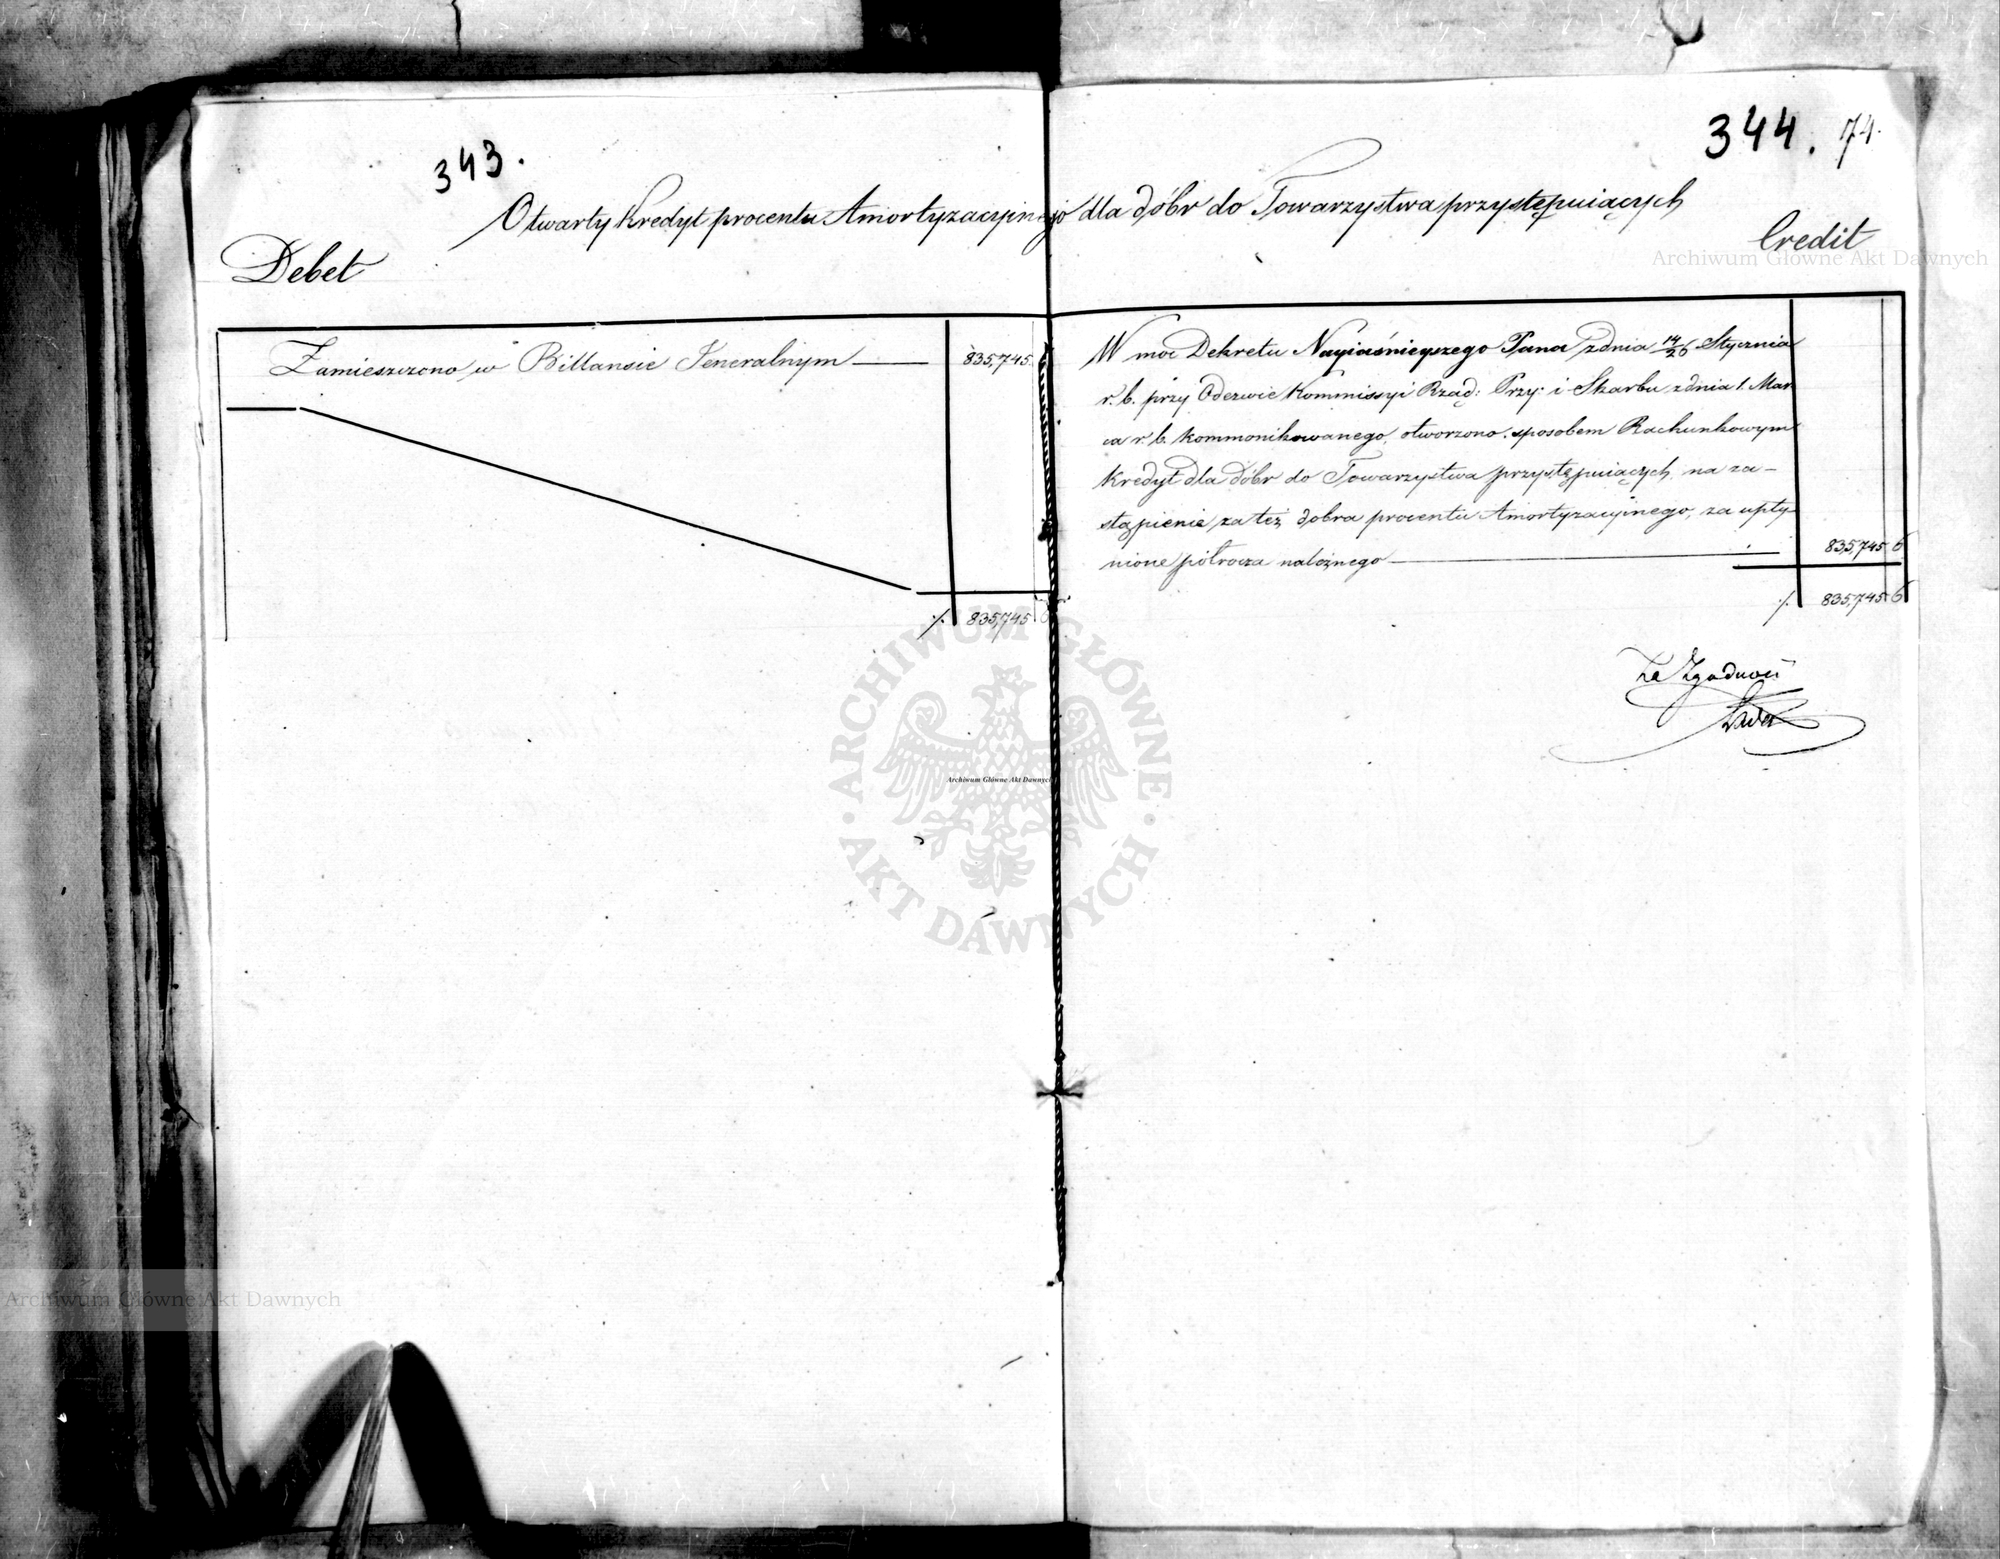 343.
344. 74.
Otwarty Kredyt procentu Amortyzacyinego dla dóbr do Towarzystwa przystępuiących
Debet
Credit
Zamieszczono w Billansie Jeneralnym — 835,745. 6
% 835,745 6
W moc Dekretu Nayiaśnieyszego Pana z dnia 14/26 Stycznia
r. b. przy Odezwie Kommissyi Rząd: Przy: i Skarbu z dnia 1. Mar
ca r. b. kommonikowanego, otworzono sposobem Rachunkowym
Kredyt dla dóbr do Towarzystwa przystępuiących, na za-
stąpienie za też dobra procentu Amortyzacyinego, za upły
nione półrocza należnego — 835,745 6
% 835,745 6
Za Zgodność
Archiwum Główne Akt Dawnych
ARCHIWUM GŁÓWNE AKT DAWNYCH
Archiwum Główne Akt Dawnych
Archiwum Główne Akt Dawnych